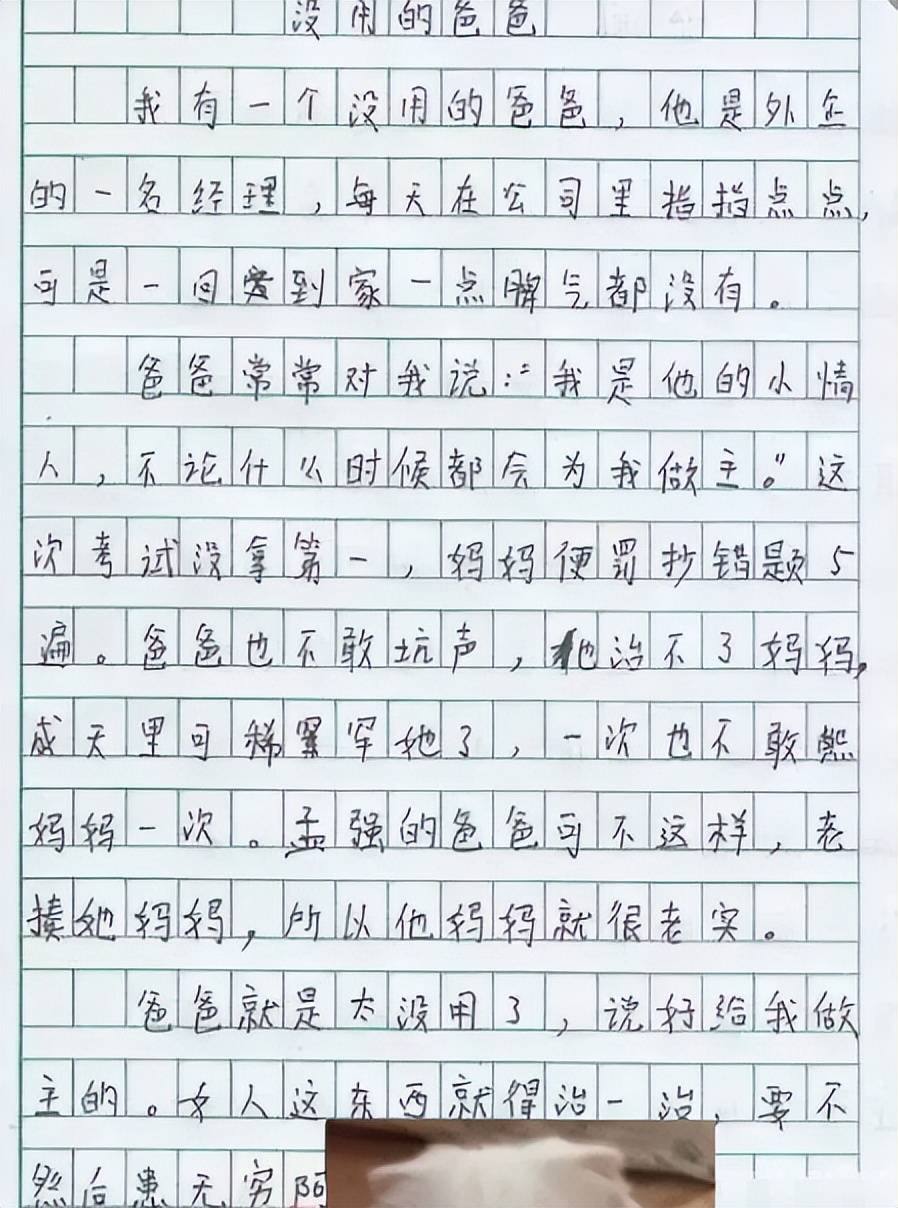 没用的爸爸
我有一个没用的爸爸，他是外企
的一名经理，每天在公司里指指点点，
可是一回到家一点脾气都没有。
爸爸常常对我说：“我是他的小情
人，不论什么时候都会为我做主。”这
次考试没拿第一，妈妈便罚抄错题5
遍。爸爸也不敢坑声，他治不了妈妈，
成天里可稀罕她了，一次也不敢熊
妈妈一次。孟强的爸爸可不这样，老
揍她妈妈，所以他妈妈就很老实。
爸爸就是太没用了，说好给我做
主的。女人这东西就得治一治，要不
然后患无穷阿